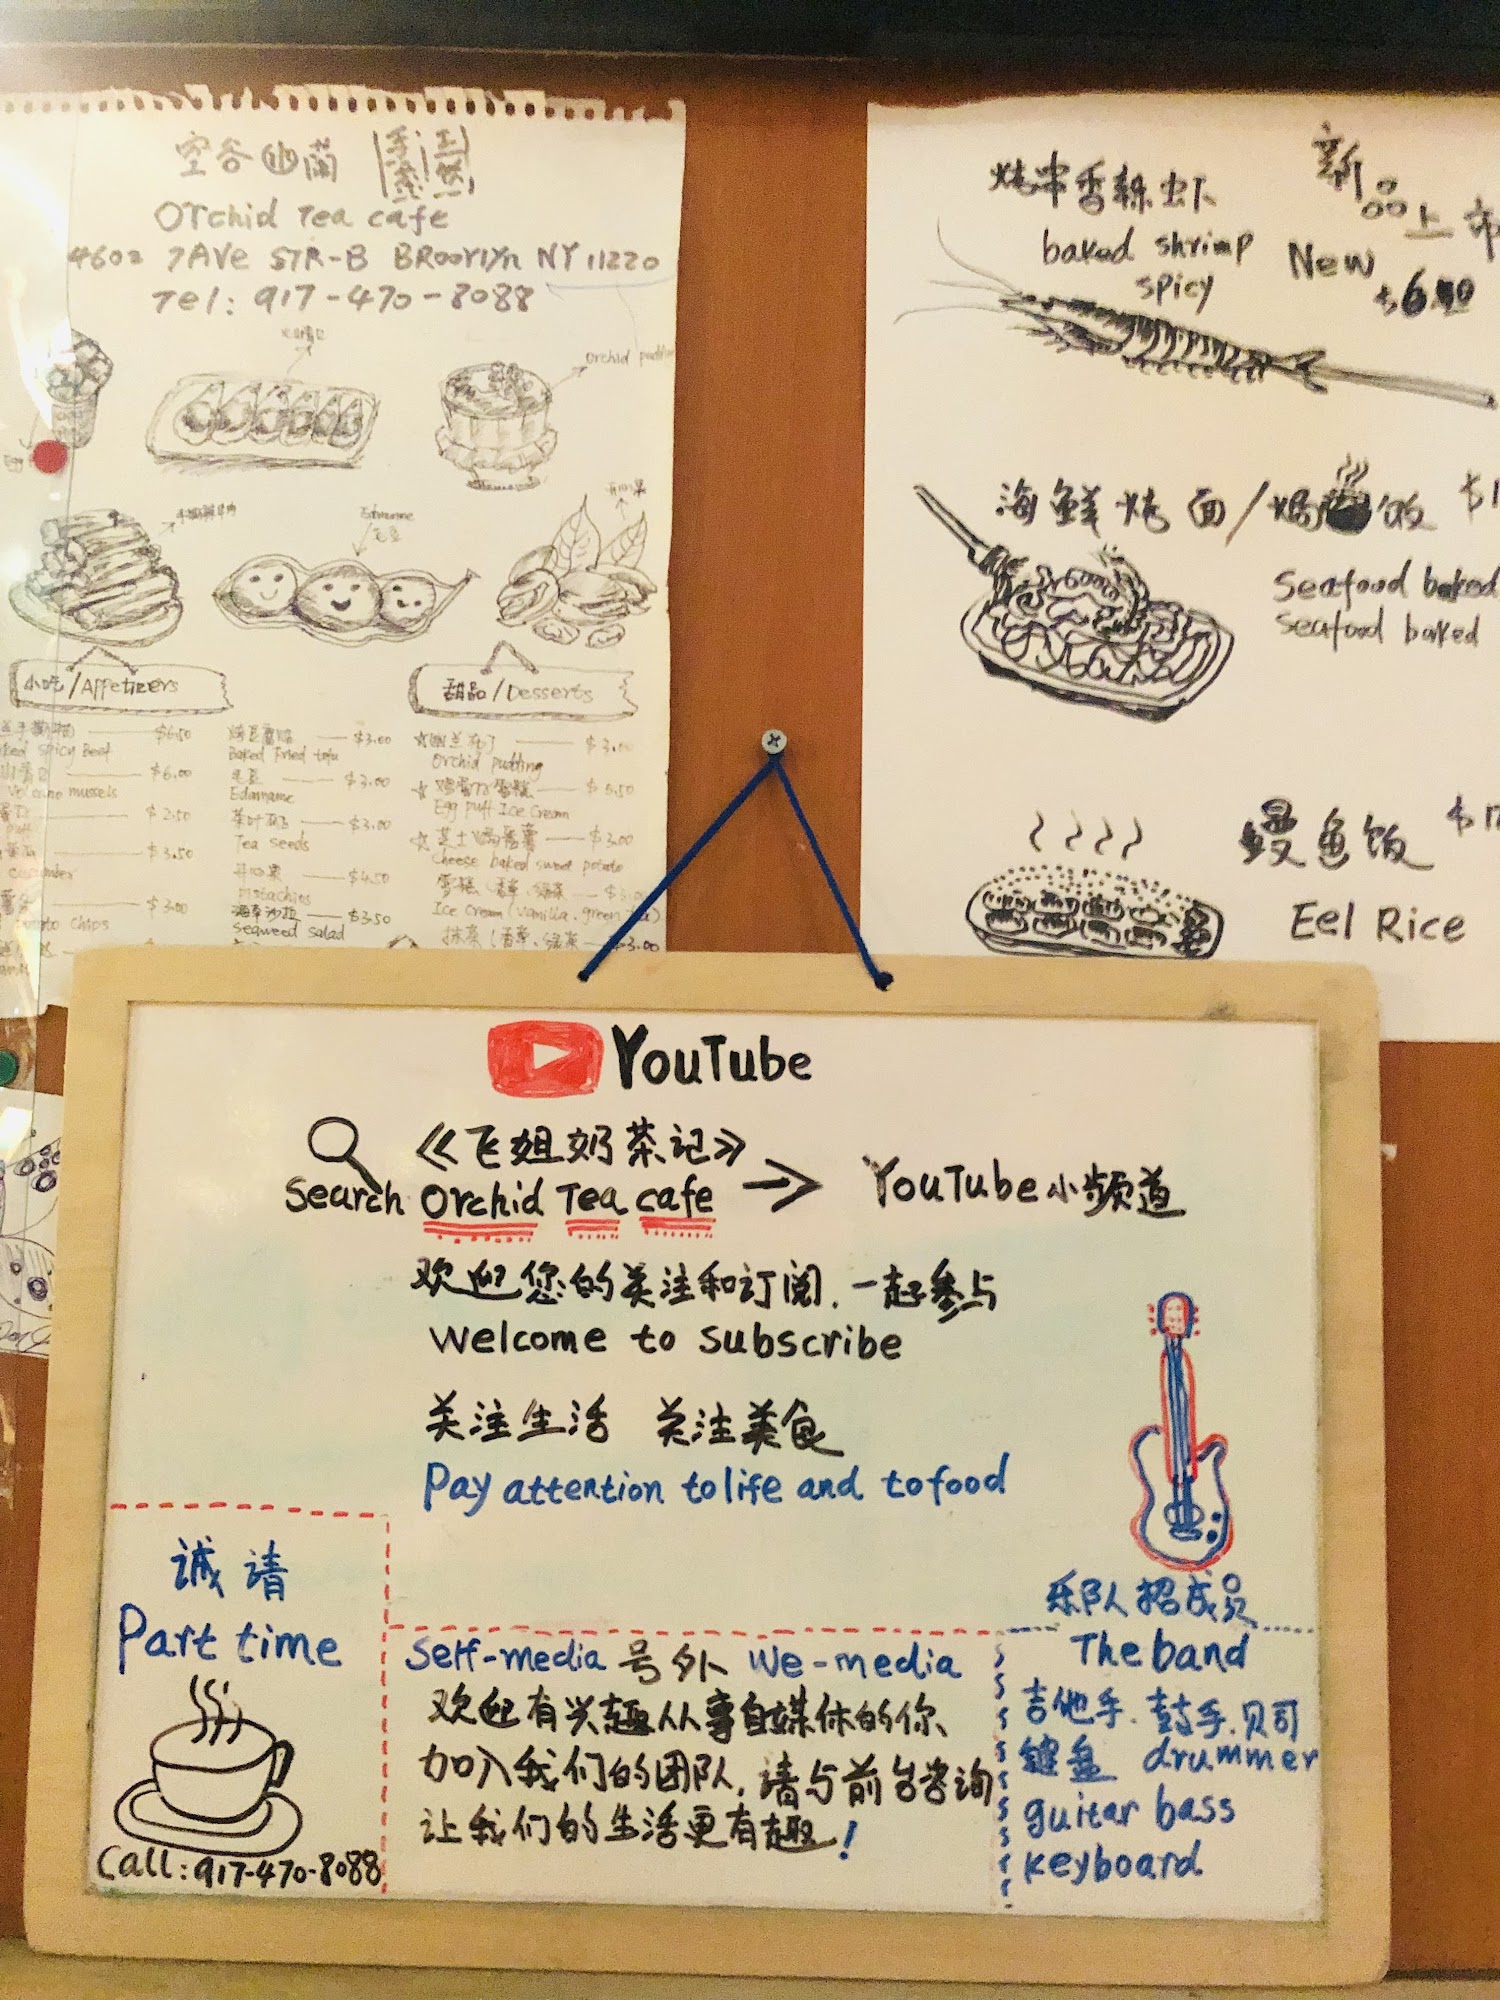 空谷幽兰
Orchid Tea cafe
4602 7AVe STR-B BRooklyn NY 11220
Tel: 917-470-8088
orchid
Edamame
毛豆
开心果
小吃/Appetizers
$6.50
spicy Beef
$6.00
mussels
$2.50
$3.50
$3.00
chips
$3.00
Baked Fried tofu
毛豆 $3.00
Edamame
$3.00
Tea seeds
开心果 $4.50
Pistachios
海草沙拉 $3.50
Seaweed Salad
甜品/Desserts
☆幽兰布丁
Orchid pudding
☆鸡蛋仔雪糕 $5.50
Egg Puff Ice Cream
☆芝士焗番薯 $3.00
Cheese baked sweet potato
Ice Cream (vanilla.green
$3.00
新品上市
New
烤串香辣虾
baked shrimp
spicy
海鲜烤面/焗饭
Seafood baked
Seafood baked
鳗鱼饭
Eel Rice
YouTube
《飞姐奶茶记》
Search Orchid Tea cafe → YouTube小频道
欢迎您的关注和订阅.一起参与
Welcome to subscribe
关注生活 关注美食
Pay attention to life and to food
诚请
Part time
Call:917-470-8088
Self-media 号外 We-media
欢迎有兴趣从事自媒体的你、
加入我们的团队,请与前台咨询
让我们的生活更有趣!
乐队招成员
The band
吉他手.鼓手.贝司
键盘 drummer
guitar bass
keyboard